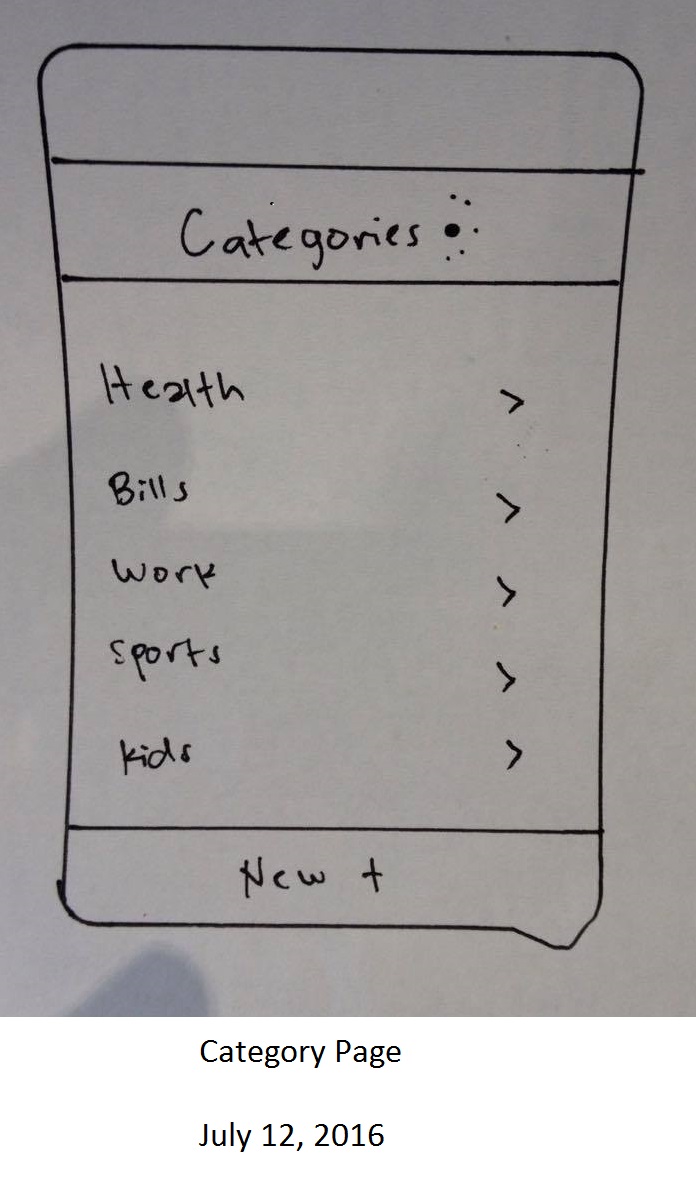 Categories
Health >
Bills >
Work >
Sports >
kids >
New +
Category Page
July 12, 2016